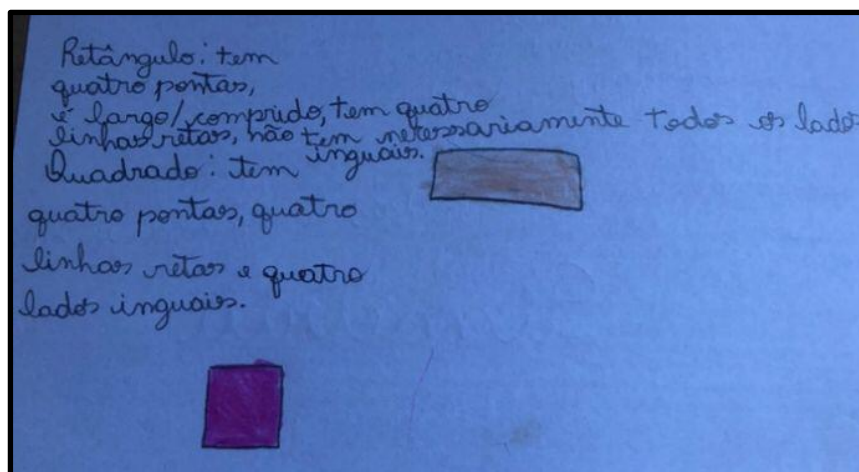 Retângulo: tem
quatro pontas,
é largo/comprido, tem quatro
linhas retas, não tem netessariamente todos os lados
inguais.
Quadrado: tem
quatro pontas, quatro
linhas retas e quatro
lados inguais.